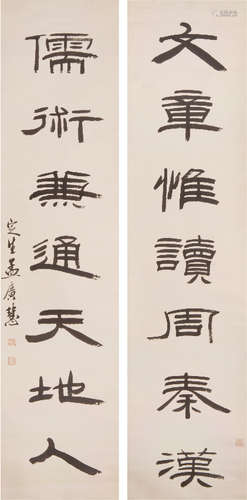 文章惟讀周秦漢
儒術兼通天地人
定生孟廣慧